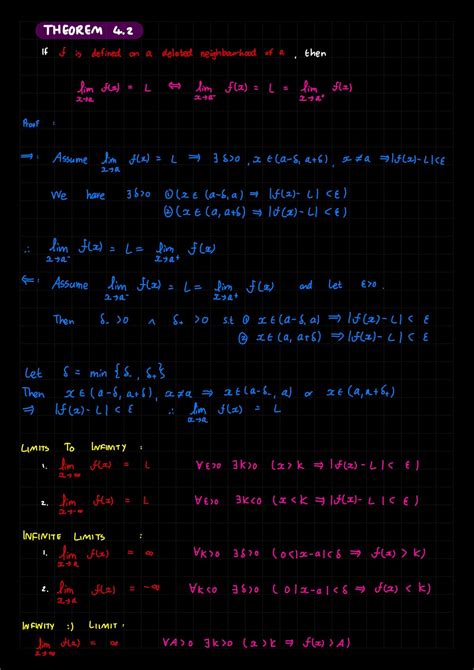 THEOREM 4.2
If f is defined on a deleted neighbourhood of a, then
lim f(x) = L ⇔ lim f(x) = L = lim f(x)
x→a x→a⁻ x→a⁺
Proof :
⇒: Assume lim f(x) = L ⇒ ∃ δ>0, x ∈ (a-δ, a+δ), x ≠ a ⇒ |f(x)-L|<ε
x→a
We have ∃ δ>0 ① (x ∈ (a-δ, a) ⇒ |f(x)-L| < ε)
② (x ∈ (a, a+δ) ⇒ |f(x)-L| < ε)
∴ lim f(x) = L = lim f(x)
x→a⁻ x→a⁺
⇐: Assume lim f(x) = L = lim f(x) and let ε>0.
x→a⁻ x→a⁺
Then δ₋>0 ∧ δ₊>0 s.t ① x ∈ (a-δ, a) ⇒ |f(x)-L| < ε
② x ∈ (a, a+δ) ⇒ |f(x)-L| < ε
Let δ = min {δ₋, δ₊}
Then x ∈ (a-δ, a+δ), x ≠ a ⇒ x ∈ (a-δ₋, a) or x ∈ (a, a+δ₊)
⇒ |f(x)-L| < ε ∴ lim f(x) = L
x→a
LIMITS TO INFINITY :
1. lim f(x) = L ∀ε>0 ∃k>0 (x>k ⇒ |f(x)-L| < ε)
x→∞
2. lim f(x) = L ∀ε>0 ∃k<0 (x<k ⇒ |f(x)-L| < ε)
x→-∞
INFINITE LIMITS :
1. lim f(x) = ∞ ∀k>0 ∃δ>0 (0<|x-a|<δ ⇒ f(x) > k)
x→a
2. lim f(x) = -∞ ∀k<0 ∃δ>0 (0|x-a|<δ ⇒ f(x) < k)
x→a
INFINITY :) LIMIT :
lim f(x) = ∞ ∀A>0 ∃k>0 (x>k ⇒ f(x)>A)
x→∞